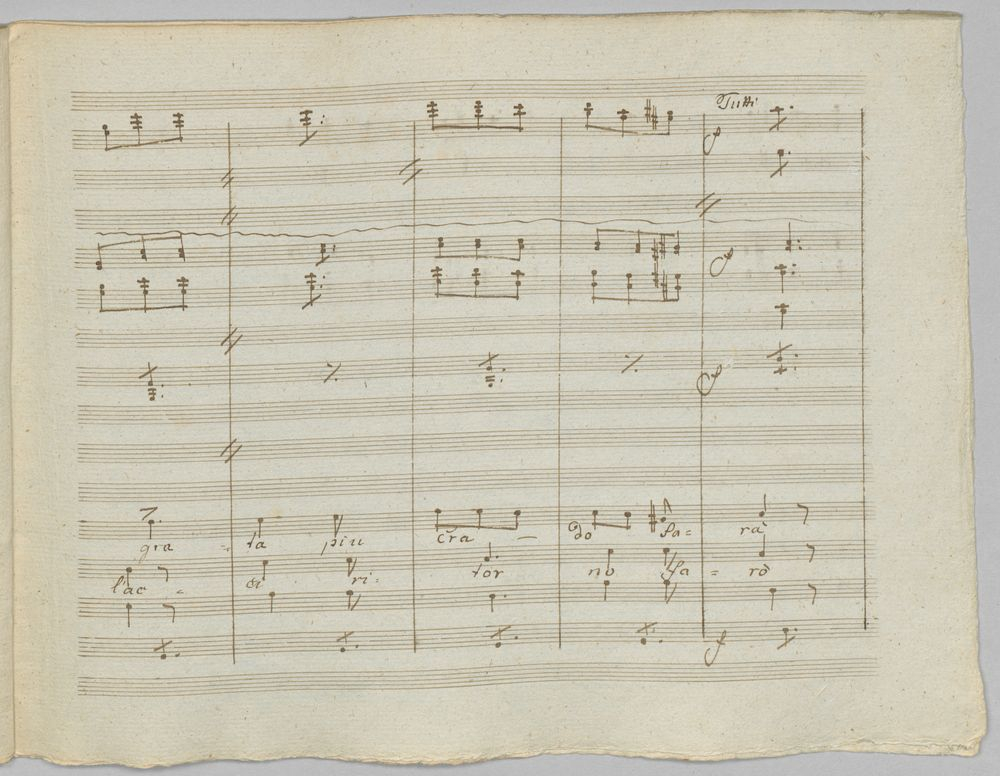 Tutti
gra - ta piu cra - do sa= rà
lac - ci ri= tor no fa = rò
f